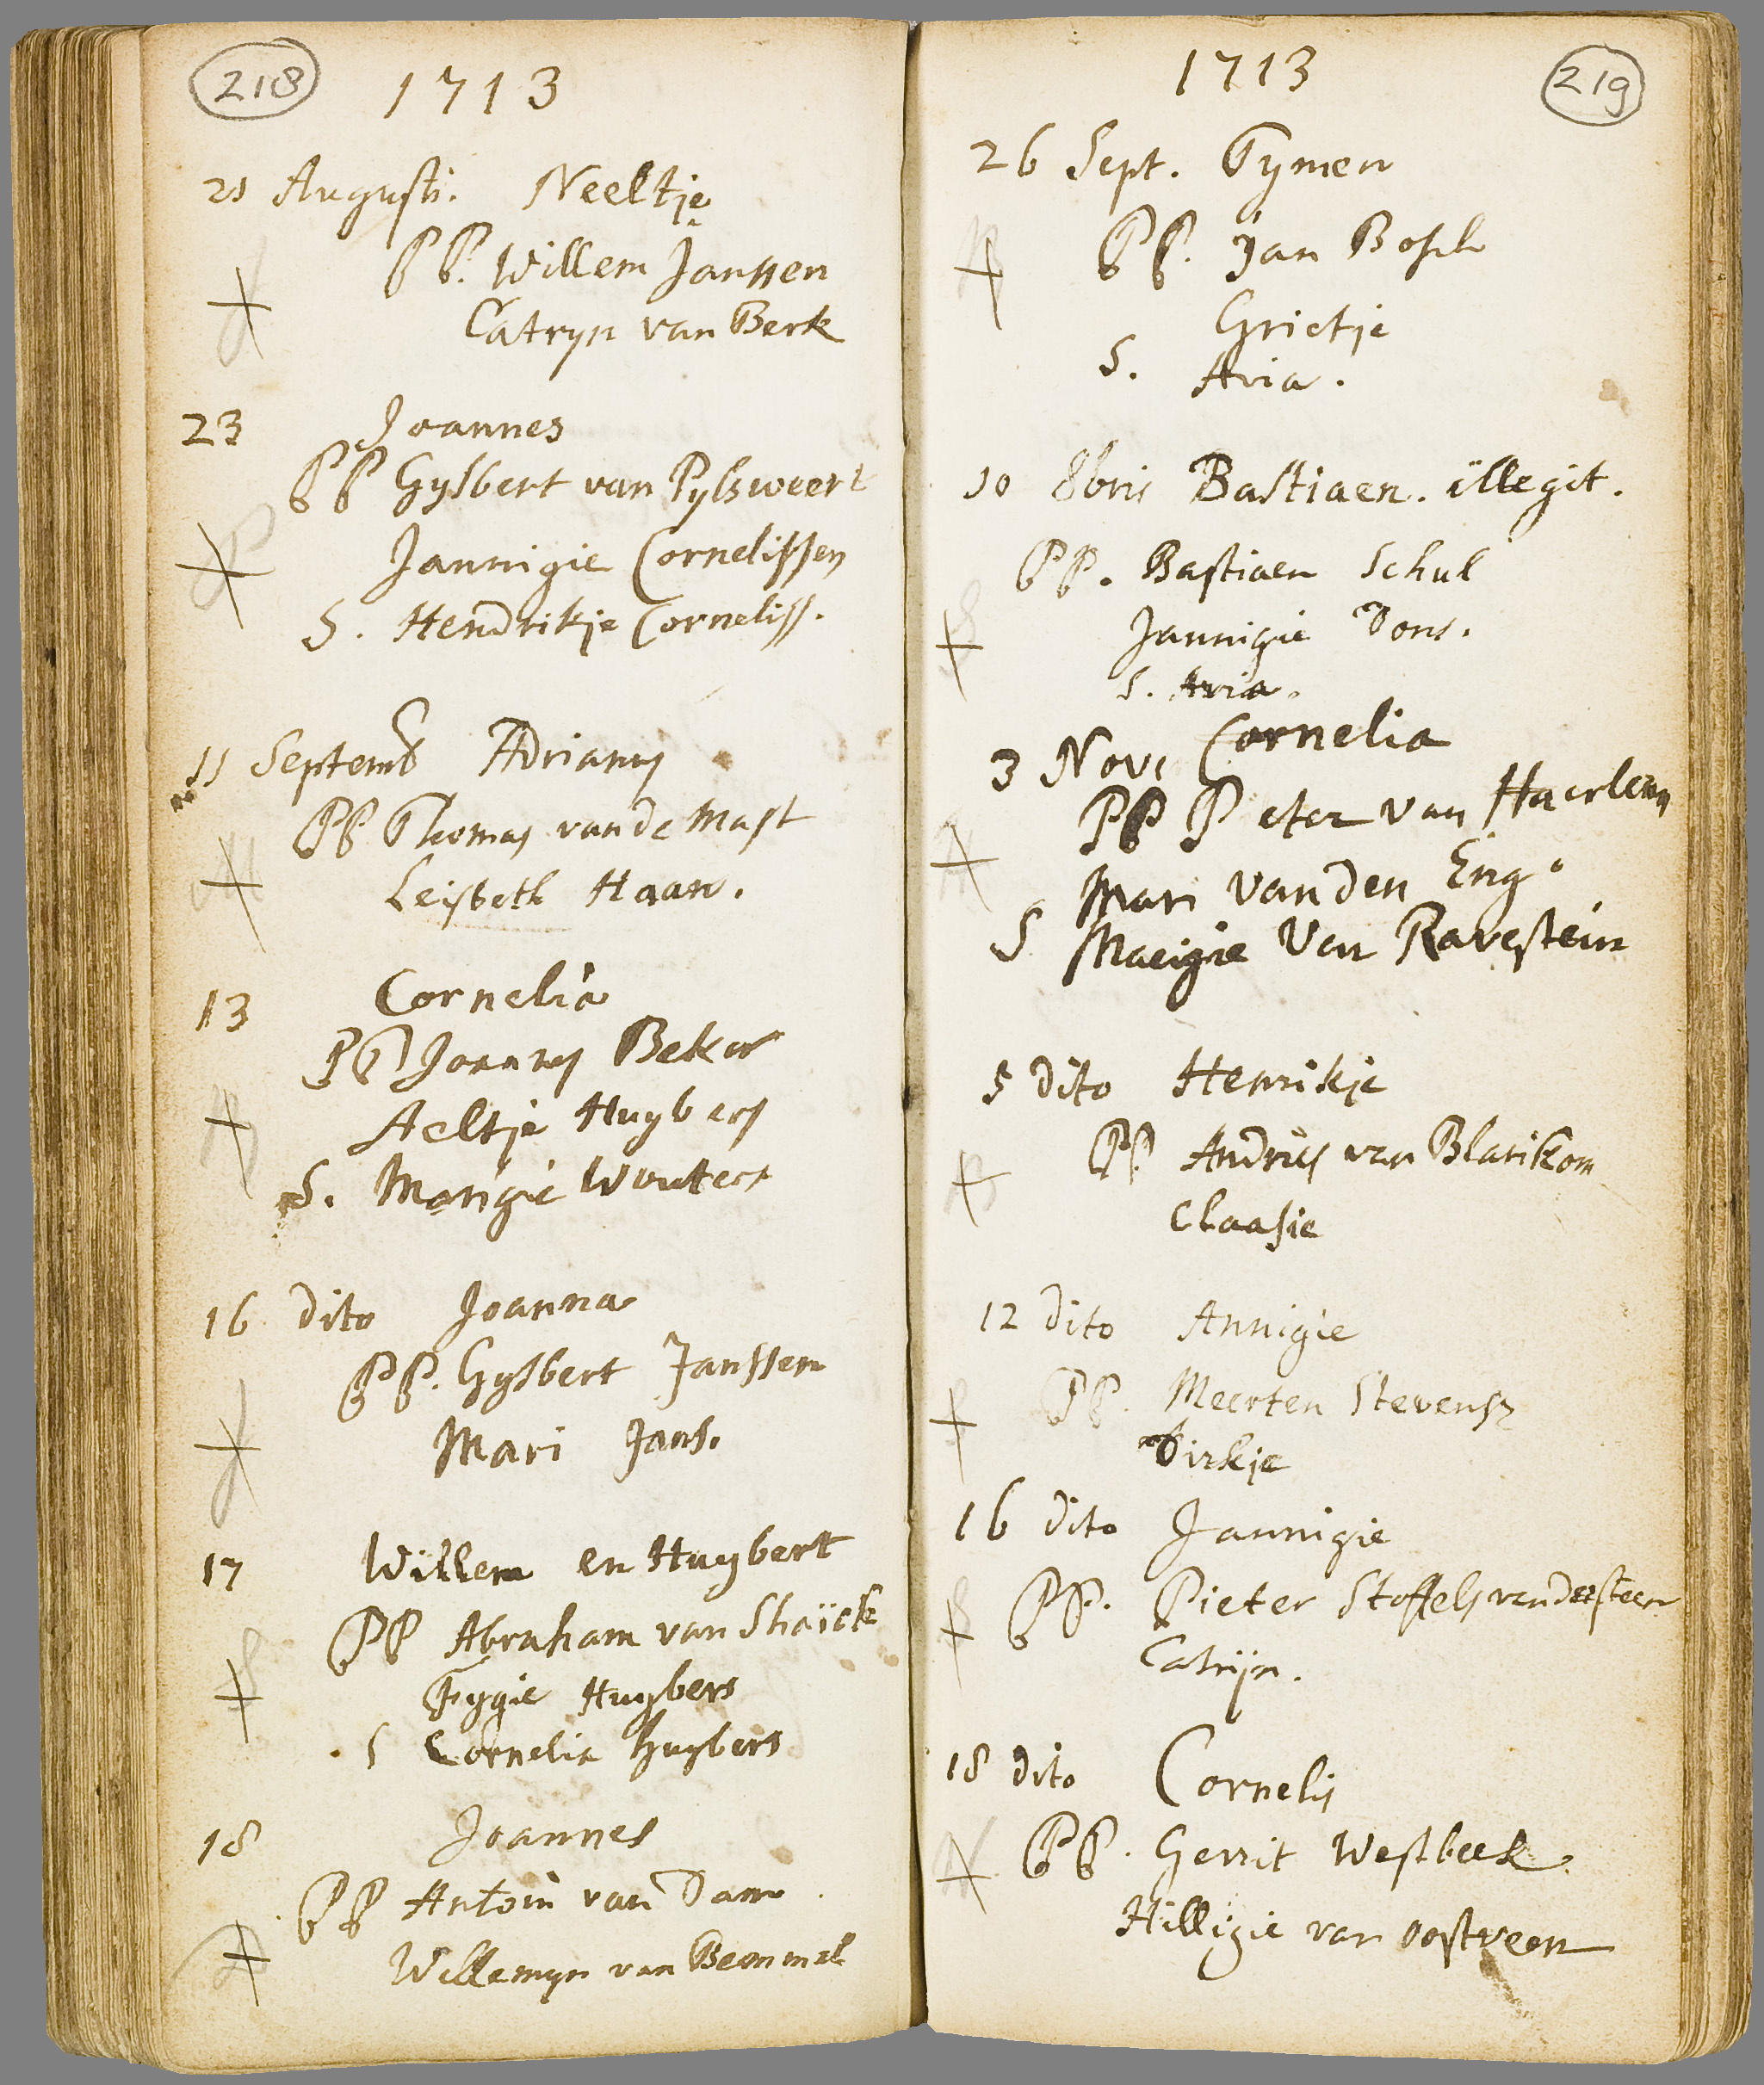 218
1713
21 Augusti. Neeltje
PP. Willem Janssen
Catryn van Berk
23 Joannes
PP Gysbert van Pylsweert
Jannigie Cornelissen
S. Hendrikje Corneliss.
11 Septemb Adrianus
PP Thomas van de Mast
Leisbeth Haan.
13 Cornelia
PP Joannes Beker
Aeltje Huybers
S. Marigie Wouters
16 dito Joanna
PP. Gysbert Janssen
Mari Jans.
17 Willem en Huybert
PP Abraham van Shaïck
Fygie Huybers
S Cornelia Huybers
18 Joannes
PP Antoni van Dam
Willemyn van Bemmel
1713
219
26 Sept. Tymen
PP. Jan Bosch
Grietje
S. Aria.
10 8bris Bastiaen. illegit.
PP. Bastiaen Schul
Jannigie Dons.
S. Aria.
3 Nov. Cornelia
PP Peter van Haerlem
Mari van den Eng.
S Maeigie Van Ravestein
5 dito Henrikje
PP Andries van Blarikom
Claasie
12 dito Annigie
PP. Meerten Stevensz
Dirkje
16 dito Jannigie
PP. Pieter Stoffels van der steen
Catrijn.
18 dito Cornelis
PP. Gerrit Westbeek
Hilligie van Oostveen